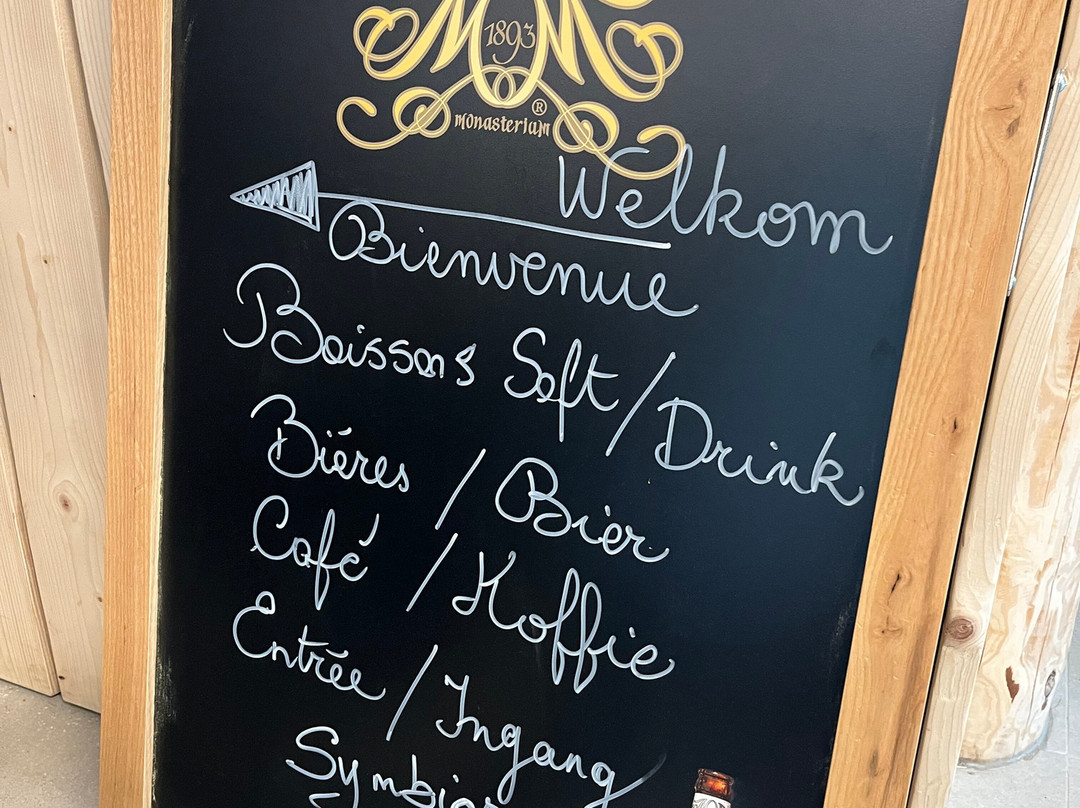 1893
Monasterium®
Welkom
Bienvenue
Boissons Soft / Drink
Biéres / Bier
Café / Koffie
Entrée / Ingang